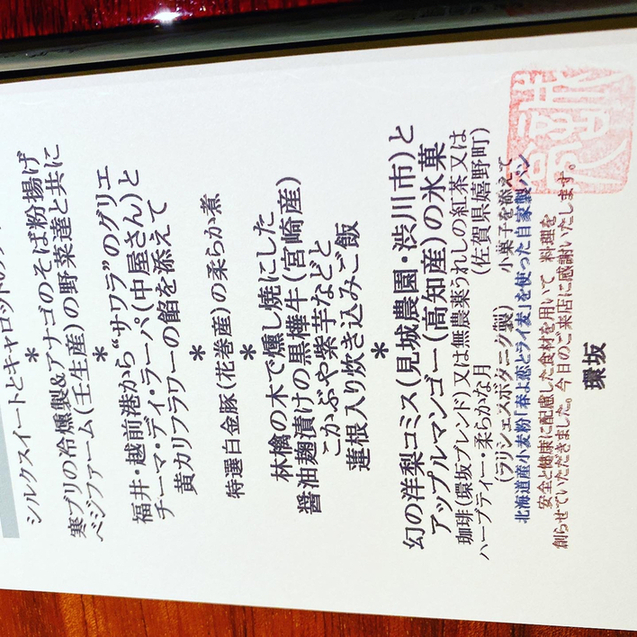 シルクスイートとキャロットの
*
寒ブリの冷燻製&アナゴのそば粉揚げ
ベジファーム(壬生産)の野菜達と共に
*
福井・越前港から“サワラ”のグリエ
チーマ・ディ・ラーパ(中屋さん)と
黄カリフラワーの餡を添えて
*
特選白金豚(花巻産)の柔らか煮
*
林檎の木で燻し焼にした
醤油麹漬けの黒樺牛(宮崎産)
こかぶや紫芋などと
蓮根入り炊き込みご飯
*
幻の洋梨コミス(見城農園・渋川市)と
アップルマンゴー(高知産)の氷菓
珈琲(環坂ブレンド)又は無農薬うれしの紅茶又は
(佐賀県嬉野町)
ハーブティー・柔らかな月
(ラリシェンボタニーク製)
小菓子を添えて
北海道産小麦粉「春よ恋とライ麦」を使った自家製パン
安全と健康に配慮した食材を用いて 料理を
創らせていただきました。今日のご来店に感謝いたします。
環坂